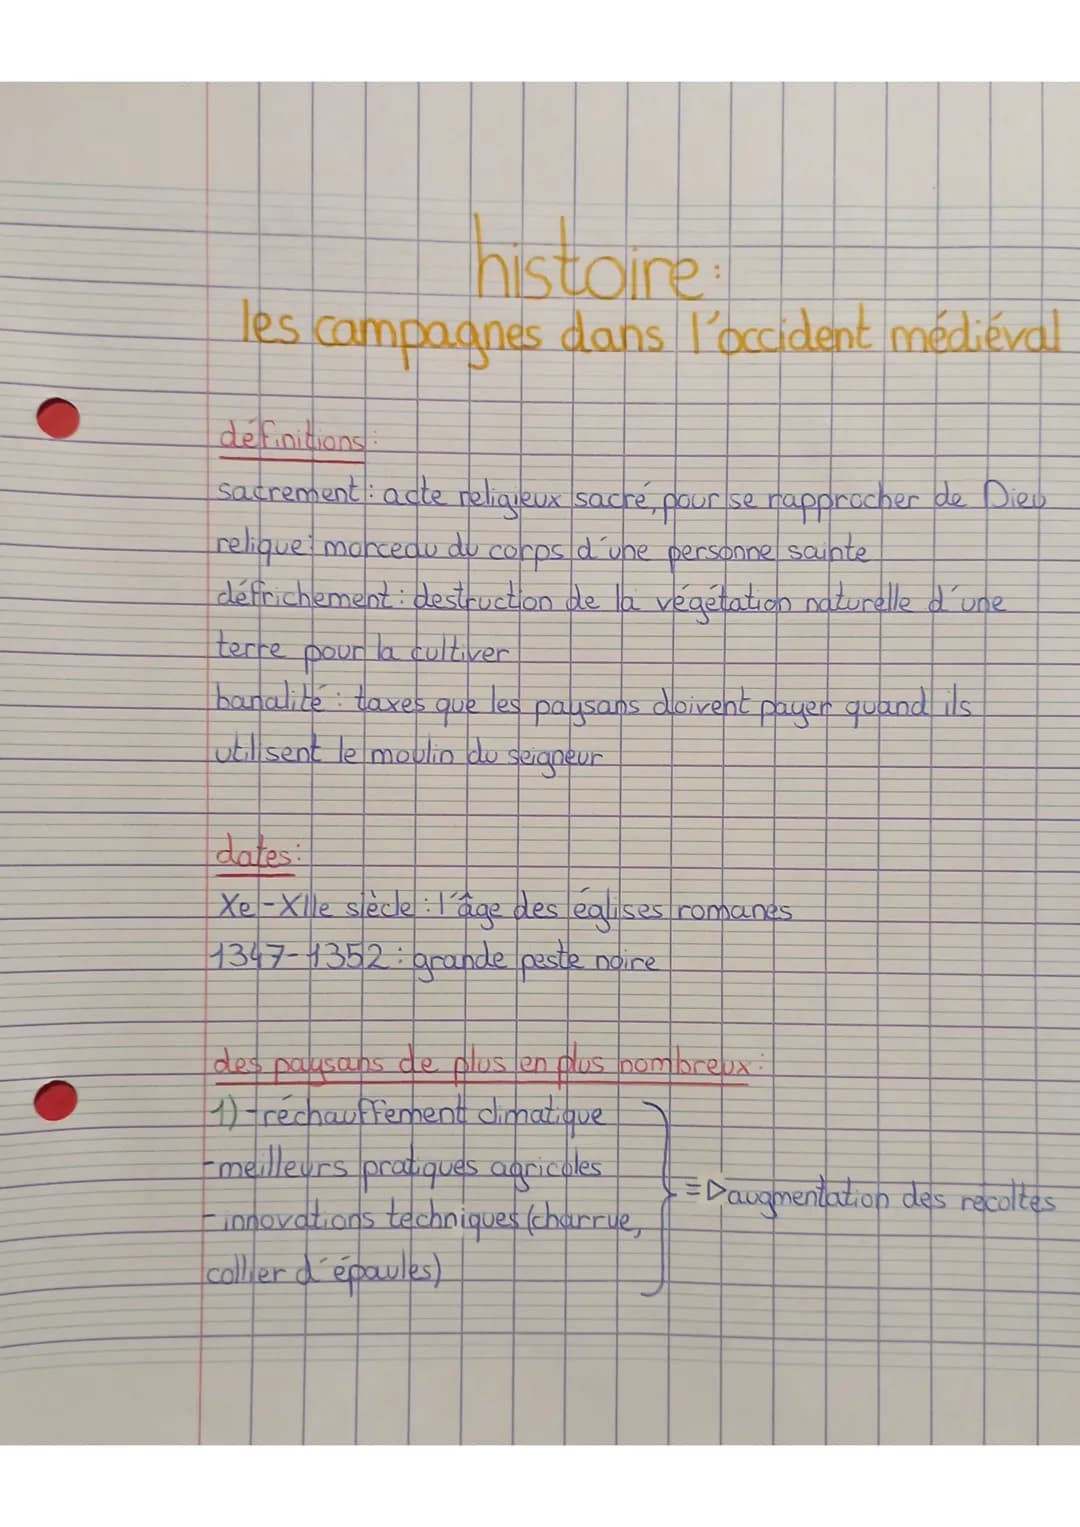 histoire:
les campagnes dans l'occident médiéval
définitions:
sacrement: acte religieux sacré, pour se rapprocher de Dieu
relique: morceau du corps d'une personne sainte
défrichement: destruction de la végétation naturelle d'une
terre pour la cultiver
banalité: taxes que les paysans doivent payer quand ils
utilisent le moulin du seigneur
dates:
Xe-XIIe siècle: l'âge des églises romanes
1347-1352: grande peste noire
des paysans de plus en plus nombreux:
1) -réchauffement climatique
-meilleurs pratiques agricoles
=> augmentation des récoltes
-innovations techniques (charrue,
collier d'épaules)